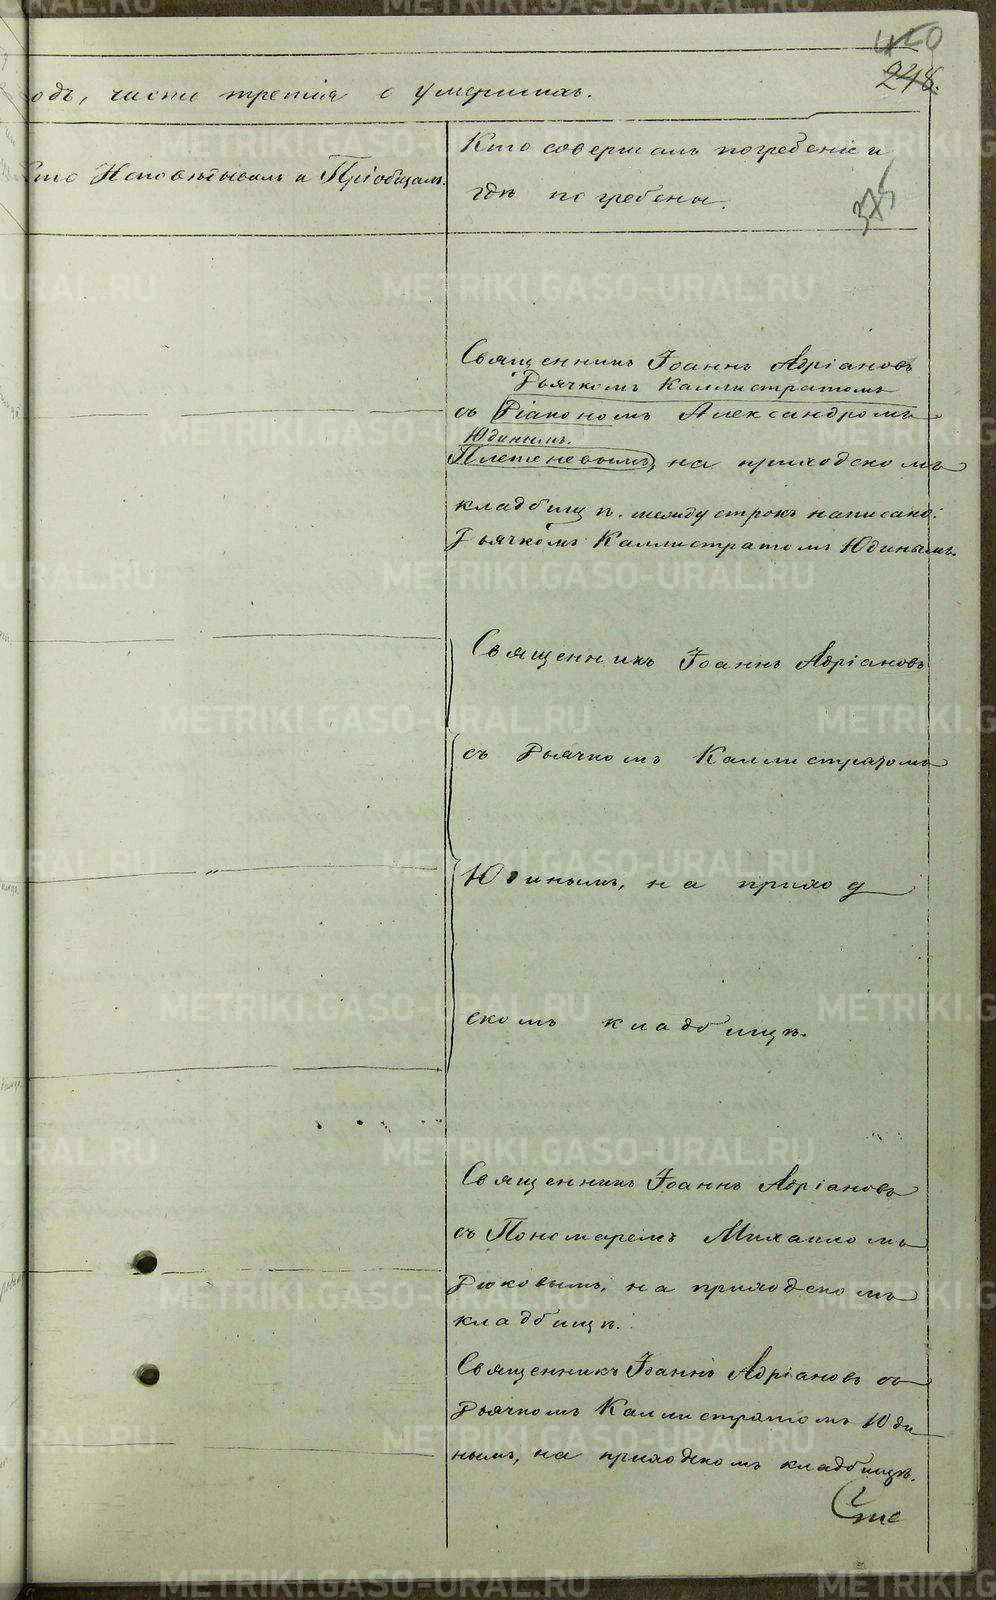 420
248.
одъ, части третія о умершихъ.
Кто Исповѣдывалъ и Пріобщалъ.
Кто совершалъ погребеніе и
гдѣ погребены.
375
Священникъ Іоаннъ Адріановъ
Дьячкомъ Каллистратомъ
съ Діакономъ Александромъ
Юдинымъ.
Плетеневымъ, на приходскомъ
кладбищѣ. между строкъ написано:
Дьячкомъ Каллистратомъ Юдинымъ.
Священникъ Іоаннъ Адріановъ
съ Дьячкомъ Каллистратомъ
Юдинымъ, на приход
скомъ кладбищѣ.
Священникъ Іоаннъ Адріановъ
съ Пономаремъ Михаиломъ
на приходскомъ
кладбищѣ.
Священникъ Іоаннъ Адріановъ съ
Дьячкомъ Каллистратомъ Юди
нымъ, на приходскомъ кладбищѣ.
METRIKI.GASO-URAL.RU